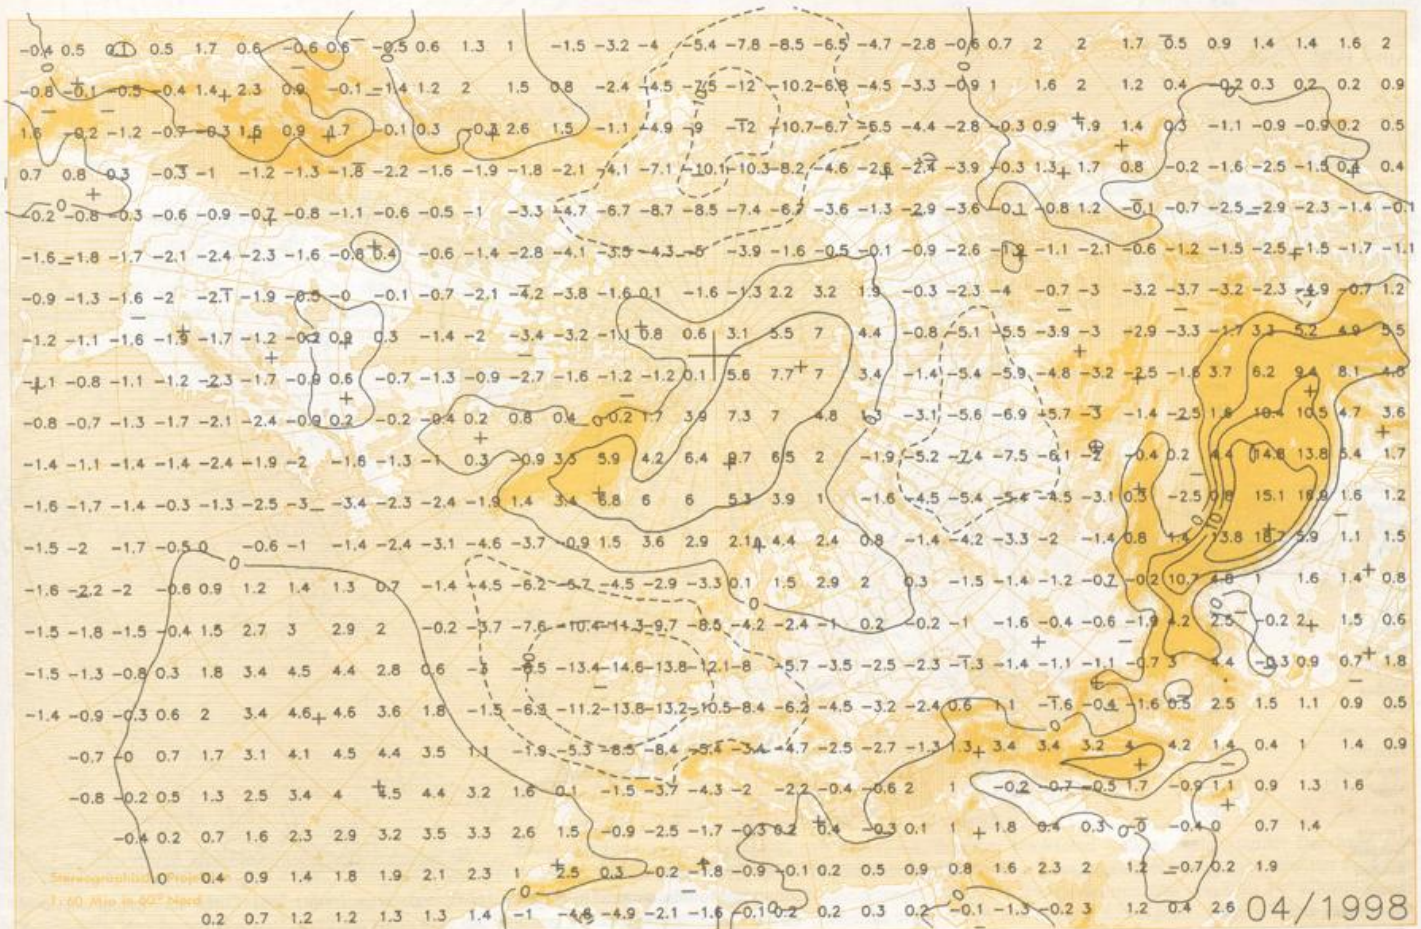 -0.4 0.5 0.1 0.5 1.7 0.6 -0.6 0.6 -0.5 0.6 1.3 1 -1.5 -3.2 -4 -5.4 -7.8 -8.5 -6.5 -4.7 -2.8 -0.6 0.7 2 2 1.7 0.5 0.9 1.4 1.4 1.6 2
-0.8 -0.1 -0.5 -0.4 1.4 2.3 0.9 -0.1 -1.4 1.2 2 1.5 0.8 -2.4 -4.5 -7.5 -12 -10.2 -6.8 -4.5 -3.3 -0.9 1 1.6 2 1.2 0.4 -0.2 0.3 0.2 0.2 0.9
1.6 -0.2 -1.2 -0.7 -0.3 1.6 0.9 1.7 -0.1 0.3 -0.3 2.6 1.5 -1.1 -4.9 -9 -12 -10.7 -6.7 -6.5 -4.4 -2.8 -0.3 0.9 1.9 1.4 0.3 -1.1 -0.9 -0.9 0.2 0.5
0.7 0.8 0.3 -0.3 -1 -1.2 -1.3 -1.8 -2.2 -1.6 -1.9 -1.8 -2.1 -4.1 -7.1 -10.1 -10.3 -8.2 -4.6 -2.6 -2.4 -3.9 -0.3 1.3 1.7 0.8 -0.2 -1.6 -2.5 -1.5 0.4 0.4
-0.2 -0.8 -0.3 -0.6 -0.9 -0.7 -0.8 -1.1 -0.6 -0.5 -1 -3.3 -4.7 -6.7 -8.7 -8.5 -7.4 -6.7 -3.6 -1.3 -2.9 -3.6 -0.1 -0.8 1.2 -0.1 -0.7 -2.5 -2.9 -2.3 -1.4 -0.1
-1.6 -1.8 -1.7 -2.1 -2.4 -2.3 -1.6 -0.8 0.4 -0.6 -1.4 -2.8 -4.1 -3.5 -4.3 -5 -3.9 -1.6 -0.5 -0.1 -0.9 -2.6 -1.1 -2.1 -0.6 -1.2 -1.5 -2.5 -1.5 -1.7 -1.1
-0.9 -1.3 -1.6 -2 -2.1 -1.9 -0.5 -0 -0.1 -0.7 -2.1 -4.2 -3.8 -1.6 0.1 -1.6 -1.3 2.2 3.2 1.9 -0.3 -2.3 -4 -0.7 -3 -3.2 -3.7 -3.2 -2.3 -4.9 -0.7 1.2
-1.2 -1.1 -1.6 -1.9 -1.7 -1.2 -0.2 0.9 0.3 -1.4 -2 -3.4 -3.2 -1.1 0.8 0.6 3.1 5.5 7 4.4 -0.8 -5.1 -5.5 -3.9 -3 -2.9 -3.3 -1.7 3.3 5.2 4.9 5.5
-1.1 -0.8 -1.1 -1.2 -2.3 -1.7 -0.9 0.6 -0.7 -1.3 -0.9 -2.7 -1.6 -1.2 -1.2 0.1 5.6 7.7 7 3.4 -1.4 -5.4 -5.9 -4.8 -3.2 -2.5 -1.6 3.7 6.2 9.4 8.1 4.8
-0.8 -0.7 -1.3 -1.7 -2.1 -2.4 -0.9 0.2 -0.2 -0.4 0.2 0.8 0.4 0 -0.2 1.7 3.9 7.3 7 4.8 1.3 0 -3.1 -5.6 -6.9 -5.7 -3 -1.4 -2.5 1.6 10.4 10.5 4.7 3.6
-1.4 -1.1 -1.4 -1.4 -2.4 -1.9 -2 -1.6 -1.3 -1 0.3 -0.9 3.5 5.9 4.2 6.4 9.7 6.5 2 -1.9 -5.2 -7.4 -7.5 -6.1 -2 -0.4 0.2 4.4 14.8 13.8 5.4 1.7
-1.6 -1.7 -1.4 -0.3 -1.3 -2.5 -3 -3.4 -2.3 -2.4 -1.9 1.4 3.4 6.8 6 6 5.3 3.9 1 -1.6 -4.5 -5.4 -5.4 -4.5 -3.1 0.3 -2.5 0.8 15.1 16.9 1.6 1.2
-1.5 -2 -1.7 -0.5 0 -0.6 -1 -1.4 -2.4 -3.1 -4.6 -3.7 -0.9 1.5 3.6 2.9 2.1 4.4 2.4 0.8 -1.4 -4.2 -3.3 -2 -1.4 0.8 1.4 10 13.8 18.7 5.9 1.1 1.5
-1.6 -2.2 -2 -0.6 0.9 0 1.2 1.4 1.3 0.7 -1.4 -4.5 -6.2 -5.7 -4.5 -2.9 -3.3 0.1 1.5 2.9 2 0.3 -1.5 -1.4 -1.2 -0.7 -0.2 10.7 4.8 1 1.6 1.4 0.8
-1.5 -1.8 -1.5 -0.4 1.5 2.7 3 2.9 2 -0.2 -3.7 -7.6 -10.4 -11.3 -9.7 -8.5 -4.2 0 -2.4 -1 0.2 -0.2 -1 -1.6 -0.4 -0.6 -1.9 4.2 10 2.5 -0.2 2 1.5 0.6
-1.5 -1.3 -0.8 0.3 1.8 3.4 4.5 4.4 2.8 0.6 -3 -8.5 -13.4 -14.6 -13.8 -12.1 -8 -5.7 -3.5 -2.5 -2.3 -1.3 -1.4 -1.1 -1.1 -0.7 3 4.4 -0.3 0.9 0.7 1.8
-1.4 -0.9 -0.3 0.6 2 3.4 4.6 4.6 3.6 1.8 -1.5 -6.3 -11.2 -13.8 -13.2 -10.5 -8.4 -6.2 -4.5 -3.2 -2.4 0.6 1.1 -1.6 0 -0.4 -1.6 0.5 2.5 1.5 1.1 0.9 0.5
-0.7 -0 0.7 1.7 3.1 4.1 4.5 4.4 3.5 1.1 -1.9 -5.3 -8.5 -8.4 -5.4 -3.4 -4.7 -2.5 -2.7 -1.3 1.3 3.4 3.4 3.2 4 4.2 1.4 0.4 1 1.4 0.9
-0.8 -0.2 0.5 1.3 2.5 3.4 4 4.5 4.4 3.2 1.6 0.1 -1.5 -3.7 -4.3 -2 -2.2 -0.4 -0.6 2 1 -0.2 -0.7 -0.5 1.7 -0.9 1.1 0.9 1.3 1.6
-0.4 0.2 0.7 1.6 2.3 2.9 3.2 3.5 3.3 2.6 1.5 -0.9 -2.5 -1.7 -0.3 0.2 0.4 -0.3 0.1 1 1.8 0.4 0.3 0 -0 -0.4 0 0.7 1.4
0 0.4 0.9 1.4 1.8 1.9 2.1 2.3 1 2.5 0.3 -0.2 -1.8 -0.9 -0.1 0.2 0.5 0.9 0.8 1.6 2.3 2 1.2 -0.7 0.2 1.9
Stereographische Projektion
1: 60 Mio in 60° Nord
0.2 0.7 1.2 1.2 1.3 1.3 1.4 -1 -4.8 -4.9 -2.1 -1.6 -0.1 0.2 0.2 0.3 0.2 -0.1 -1.3 -0.2 3 1.2 0.4 2.6
04/1998